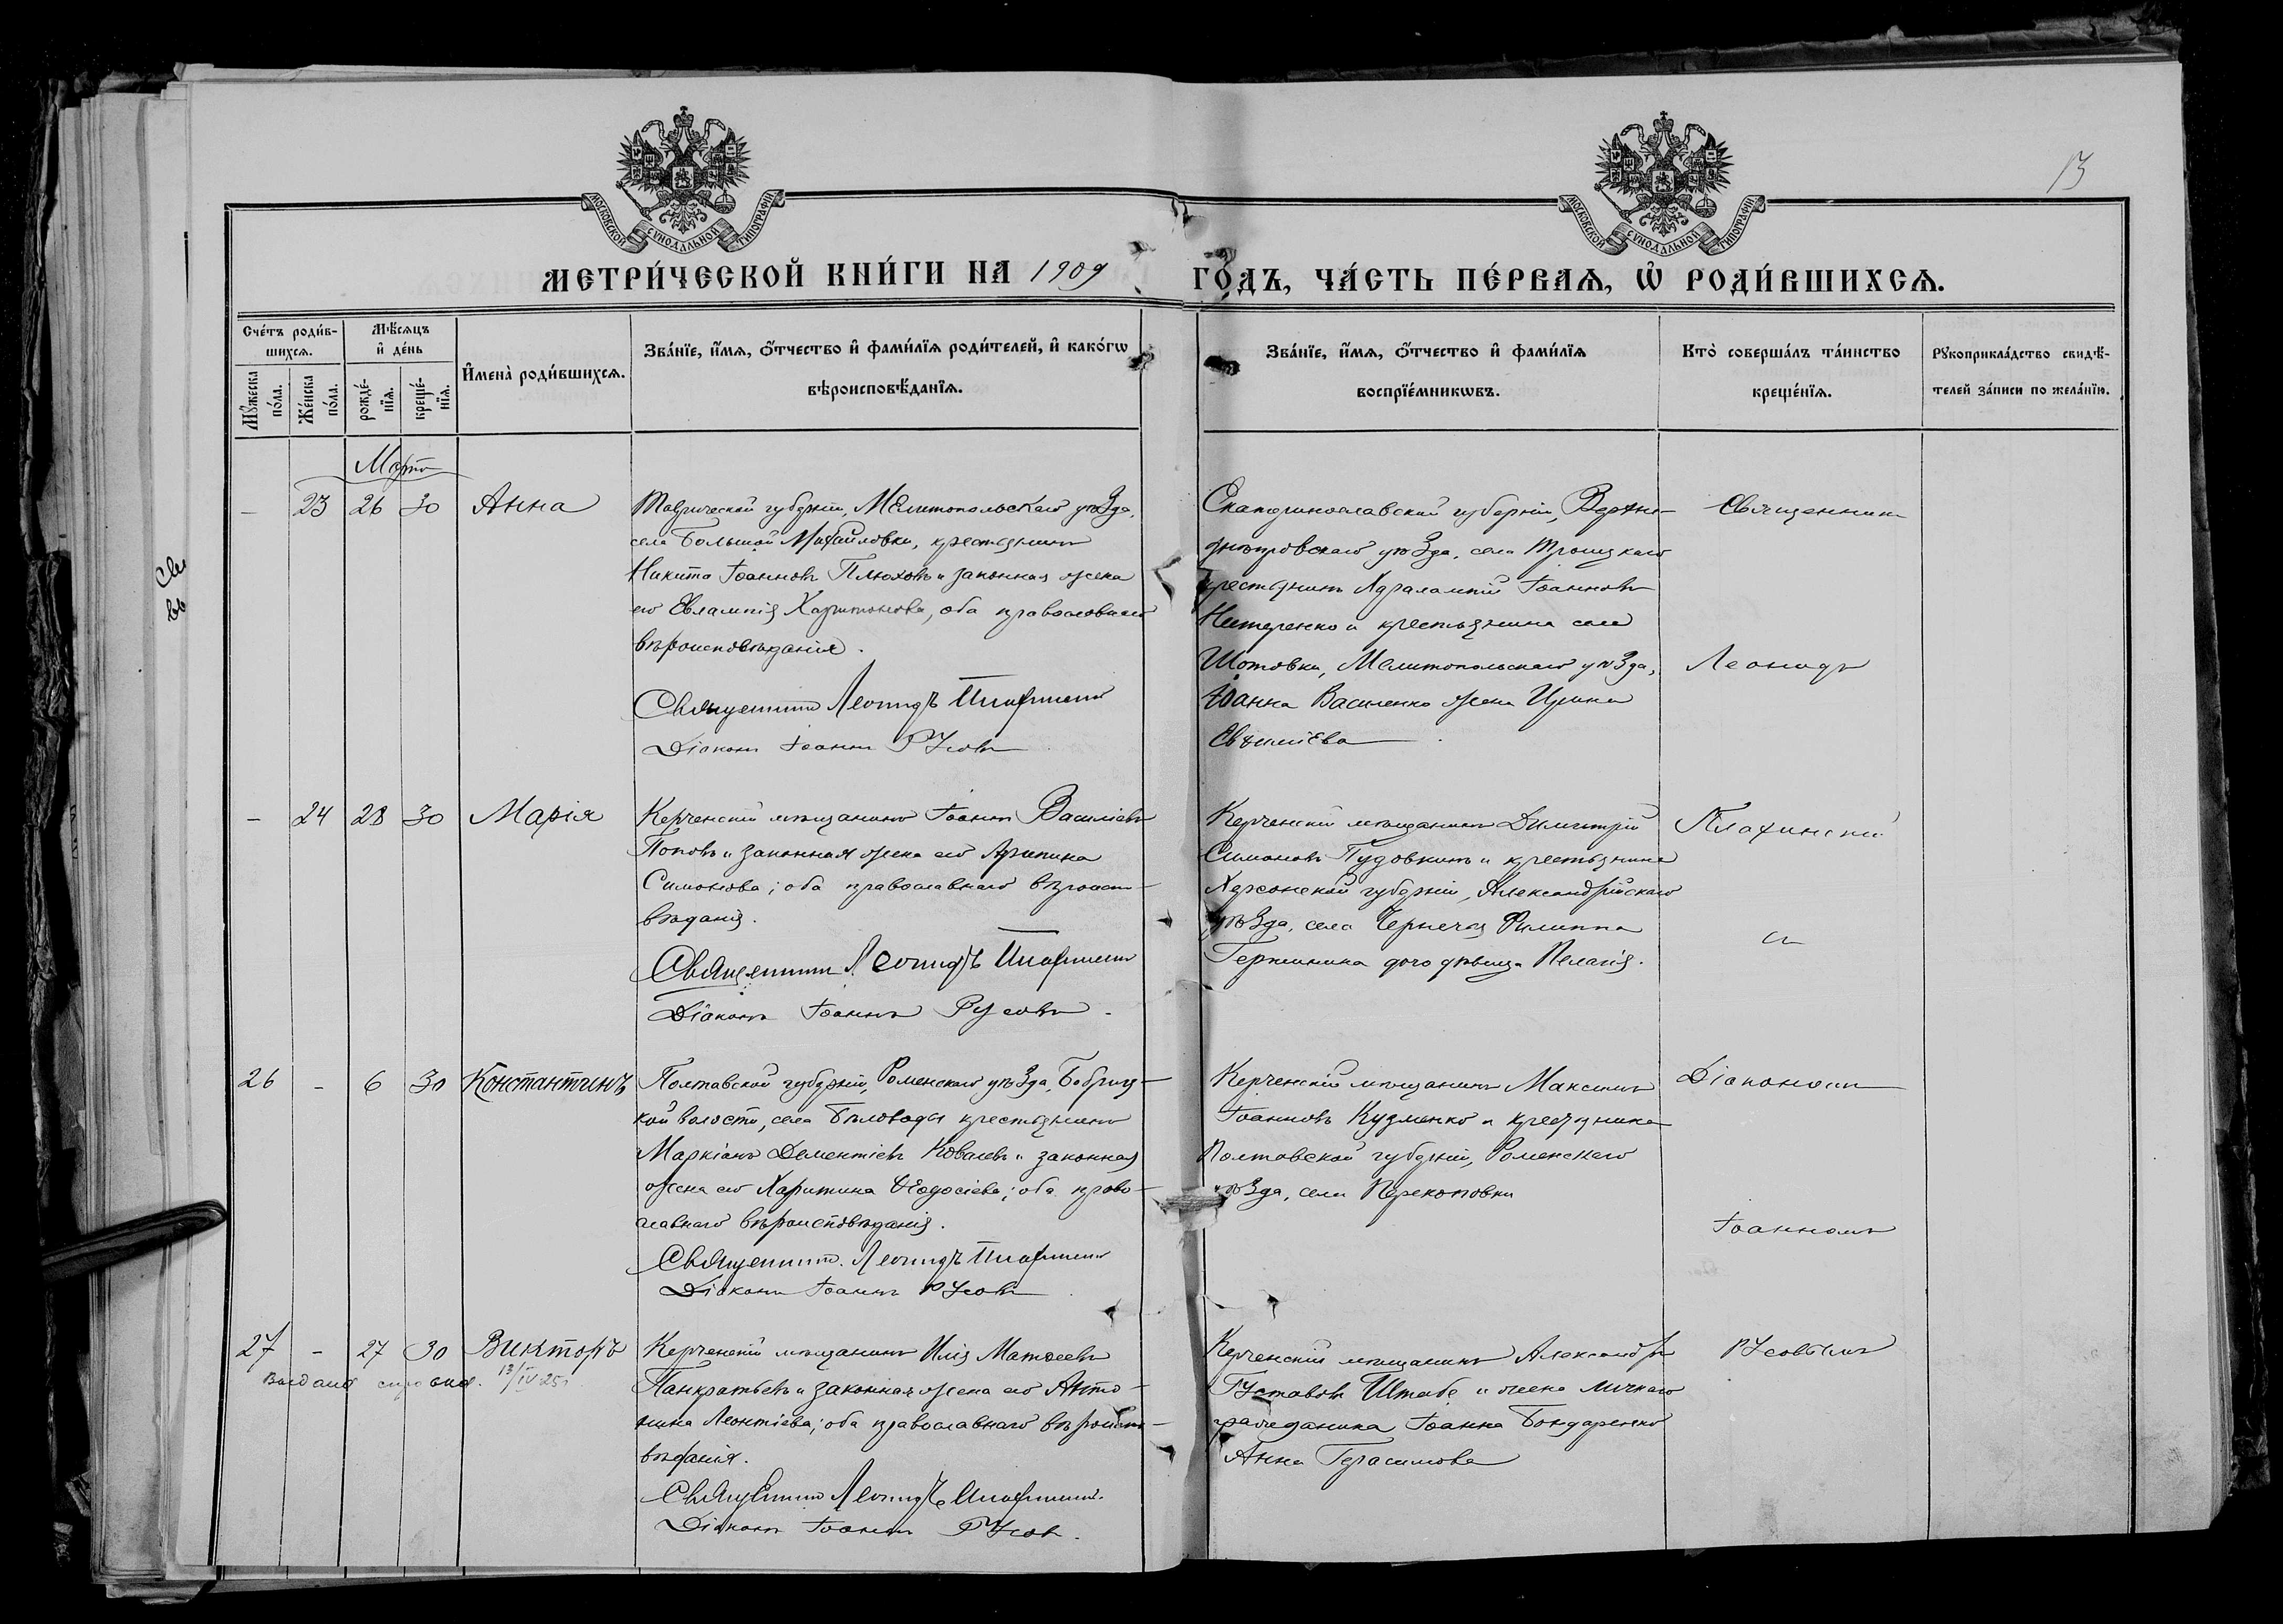 МОСКОВСКОЙ СУНОДАЛЬНОЙ ТИПОГРАФІИ
МОСКОВСКОЙ СУНОДАЛЬНОЙ ТИПОГРАФІИ
13
МЕТРИ́ЧЕСКОЙ КНИ́ГИ НА 1909 ГО́ДЪ, ЧА́СТЬ ПЕ́РВАѦ, Ѡ҆ РОДИ́ВШИХСѦ.
Сче́тъ роди́в-
шихсѧ.
Мꙋ́жеска по́ла.
Же́нска по́ла.
Мѣ́сѧцъ
и҆ де́нь
рожде́-
нїѧ.
креще́-
нїѧ.
И҆мена̀ роди́вшихсѧ.
Зва́нїе, и҆́мѧ, ѻ҆́тчество и҆ фами́лїѧ роди́телей, и҆ како́гѡ
вѣроисповѣ́данїѧ.
Зва́нїе, и҆́мѧ, ѻ҆́тчество и҆ фами́лїѧ
воспрїе́мникѡвъ.
Кто̀ соверша́лъ та́инство
креще́нїѧ.
Рꙋкоприкла́дство свидѣ́-
телей за́писи по жела́нїю.
Мартъ
– 23 26 30 Анна
Таврической губерніи, Мелитопольскаго уѣзда,
села Большой Михайловки, крестьянинъ
Никита Іоанновъ Плюховъ и законная жена
его Евлампія Харитонова, оба православнаго
вѣроисповѣданія.
Священникъ Леонидъ
Діаконъ Іоаннъ Русовъ
Екатеринославской губерніи, Верхне-
днѣпровскаго уѣзда, села Троицкаго
крестьянинъ Харалампій Іоанновъ
Нестеренко и крестьянина села
Шотовки, Мелитопольскаго уѣзда,
Іоанна Василенко жена Ирина
Евѳиміева
Священникъ
Леонидъ
– 24 28 30 Марія
Керченскій мѣщанинъ Іоаннъ Василіевъ
Поповъ и законная жена его Агрипина
Симонова; оба православнаго вѣроиспо-
вѣданія.
Священникъ Леонидъ
Діаконъ Іоаннъ Русовъ
Керченскій мѣщанинъ Димитрій
Симоновъ Пудовкинъ и крестьянина
Херсонской губерніи, Александрійскаго
уѣзда, села Чернечья Филиппа
дочь дѣвица Пелагія.
съ
26 – 6 30 Константинъ
Полтавской губерніи, Роменскаго уѣзда, Бобриц-
кой волости, села Бѣловода крестьянинъ
Маркіанъ Дементіевъ Ковалевъ и законная
жена его Харитина Ѳеодосіева; оба право-
славнаго вѣроисповѣданія.
Священникъ Леонидъ
Діаконъ Іоаннъ Русовъ
Керченскій мѣщанинъ Максимъ
Іоанновъ Кузменко и крестьянка
Полтавской губерніи, Роменскаго
уѣзда, села Перекоповки
Діакономъ
Іоанномъ
27 – 27 30 Викторъ
Выдана справка. 13/IV 25
Керченскій мѣщанинъ Илія Матѳеевъ
Панкратьевъ и законная жена его Анто-
нина Леонтіева; оба православнаго вѣроиспо-
вѣданія.
Священникъ Леонидъ
Діаконъ Іоаннъ Русовъ.
Керченскій мѣщанинъ Александръ
Густавовъ Штабе и жена личнаго
гражданина Іоанна Бондаренко
Анна Герасимова
Русовымъ